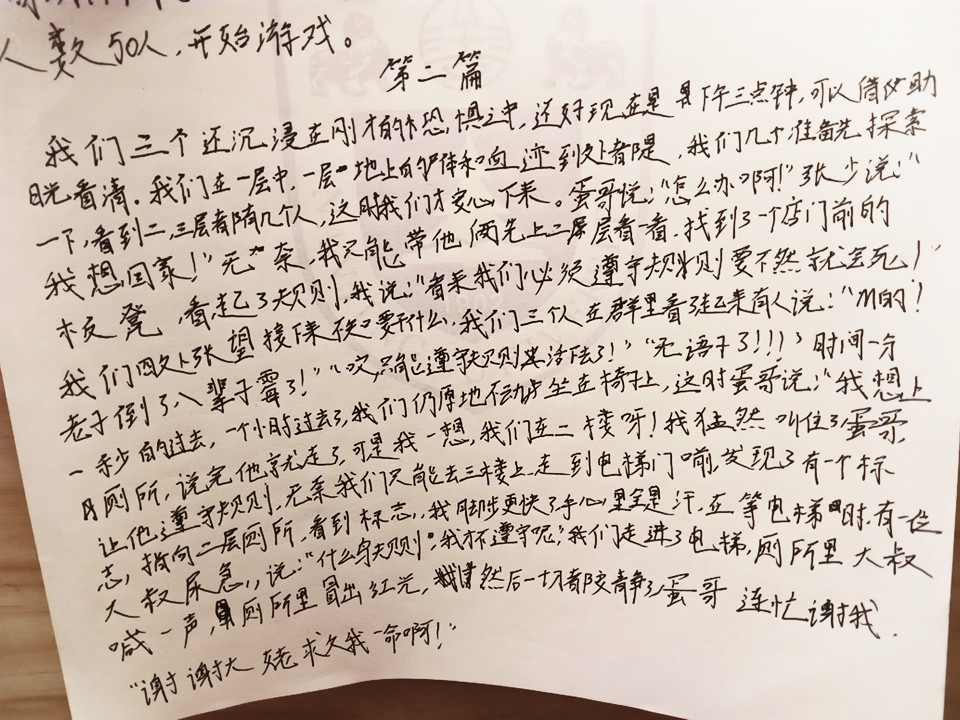 人数50人,开始游戏。
第二篇
我们三个还沉浸在刚才的恐惧之中,还好现在是下午三点钟,可以借助
日光看清。我们在一层中,一层地上的尸体和血迹到处都是,我们几个准备先探索
一下,看到二,三层都有几个人,这时我们才安心下来。蛋哥说:“怎么办啊!”张少说:“
我想回家!”无奈,我只能带他俩先上二层看一看,找到了一个店门前的
板凳,看起了规则,我说:“看来我们必须遵守规则要不然就会死!”
我们四处张望接下来要干什么,我们三个人在群里看了起来有人说:“M的!
老子倒了八辈子霉了!”“哎,只能遵守规则其活法了!”“无语子了!!!”时间一分
一秒的过去,一个小时过去了,我们仍原地不动坐在椅子上,这时蛋哥说:“我想上
厕所,说完他就走了,可是我一想,我们在二楼呀!我猛然叫住了蛋哥,
让他遵守规则,无奈我们只能去三楼上,走到电梯门前,发现了有一个标
志,指向二层厕所,看到标志,我脚步更快了手心里全是汗,在等电梯时,有一位
大叔尿急,说:“什么导规则,我才不遵守呢,我们走进了电梯,厕所里大叔
喊一声,厕所里冒出红光,然后一切都安静了蛋哥连忙谢我,
“谢谢大姥求久我一命啊!”